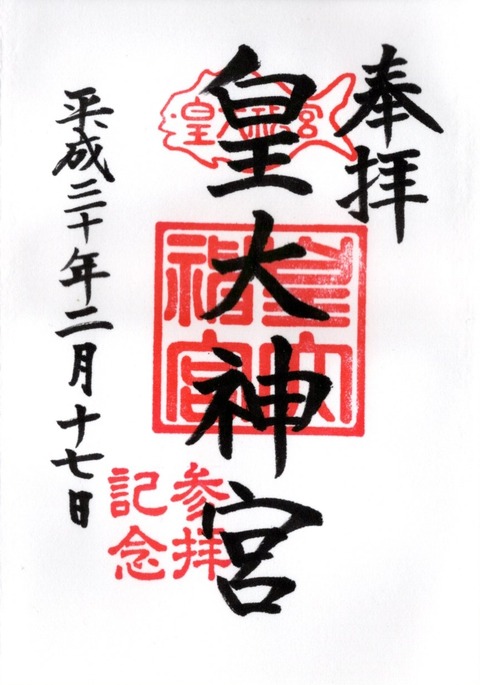 奉拝
皇大神宮
皇大神宮
皇大神宮
参拝
記念
平成三十年二月十七日